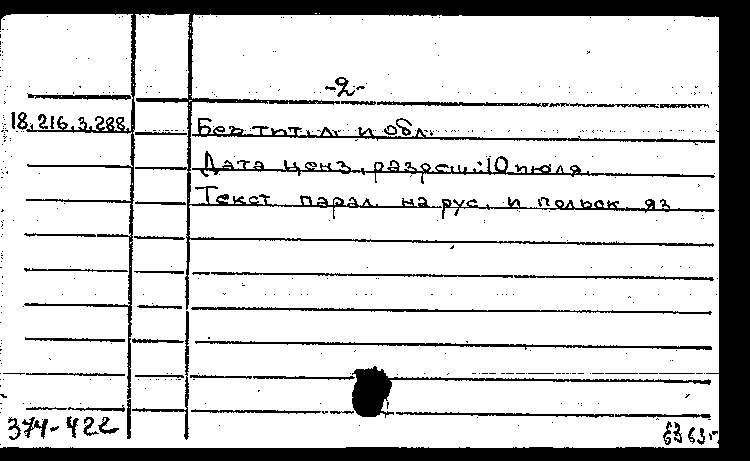 -2-
18.216.3.288.
Без тит. л. и обл.
Дата ценз. разреш.: 10 июля.
Текст парал. на рус. и польск. яз
374-422